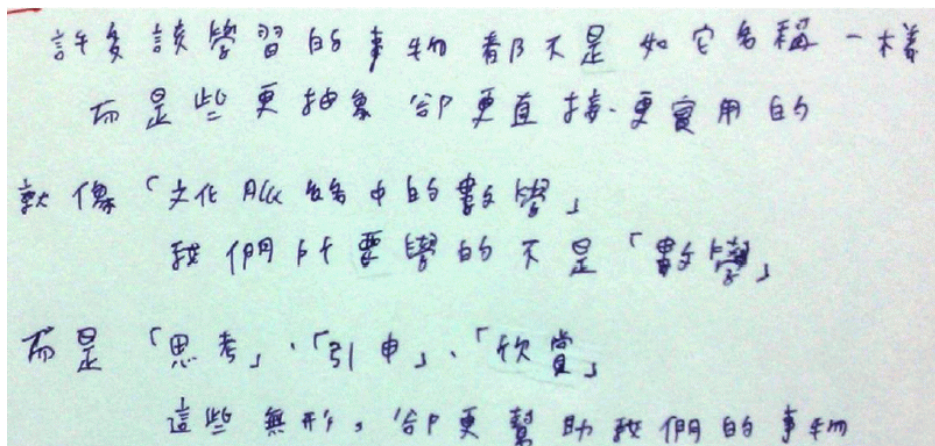 許多該學習的事物都不是如它名稱一樣
而是些更抽象 卻更直接、更實用的
就像「文化脈絡中的數學」
我們所要學的不是「數學」
而是「思考」、「引申」、「欣賞」
這些無形，卻更幫助我們的事物